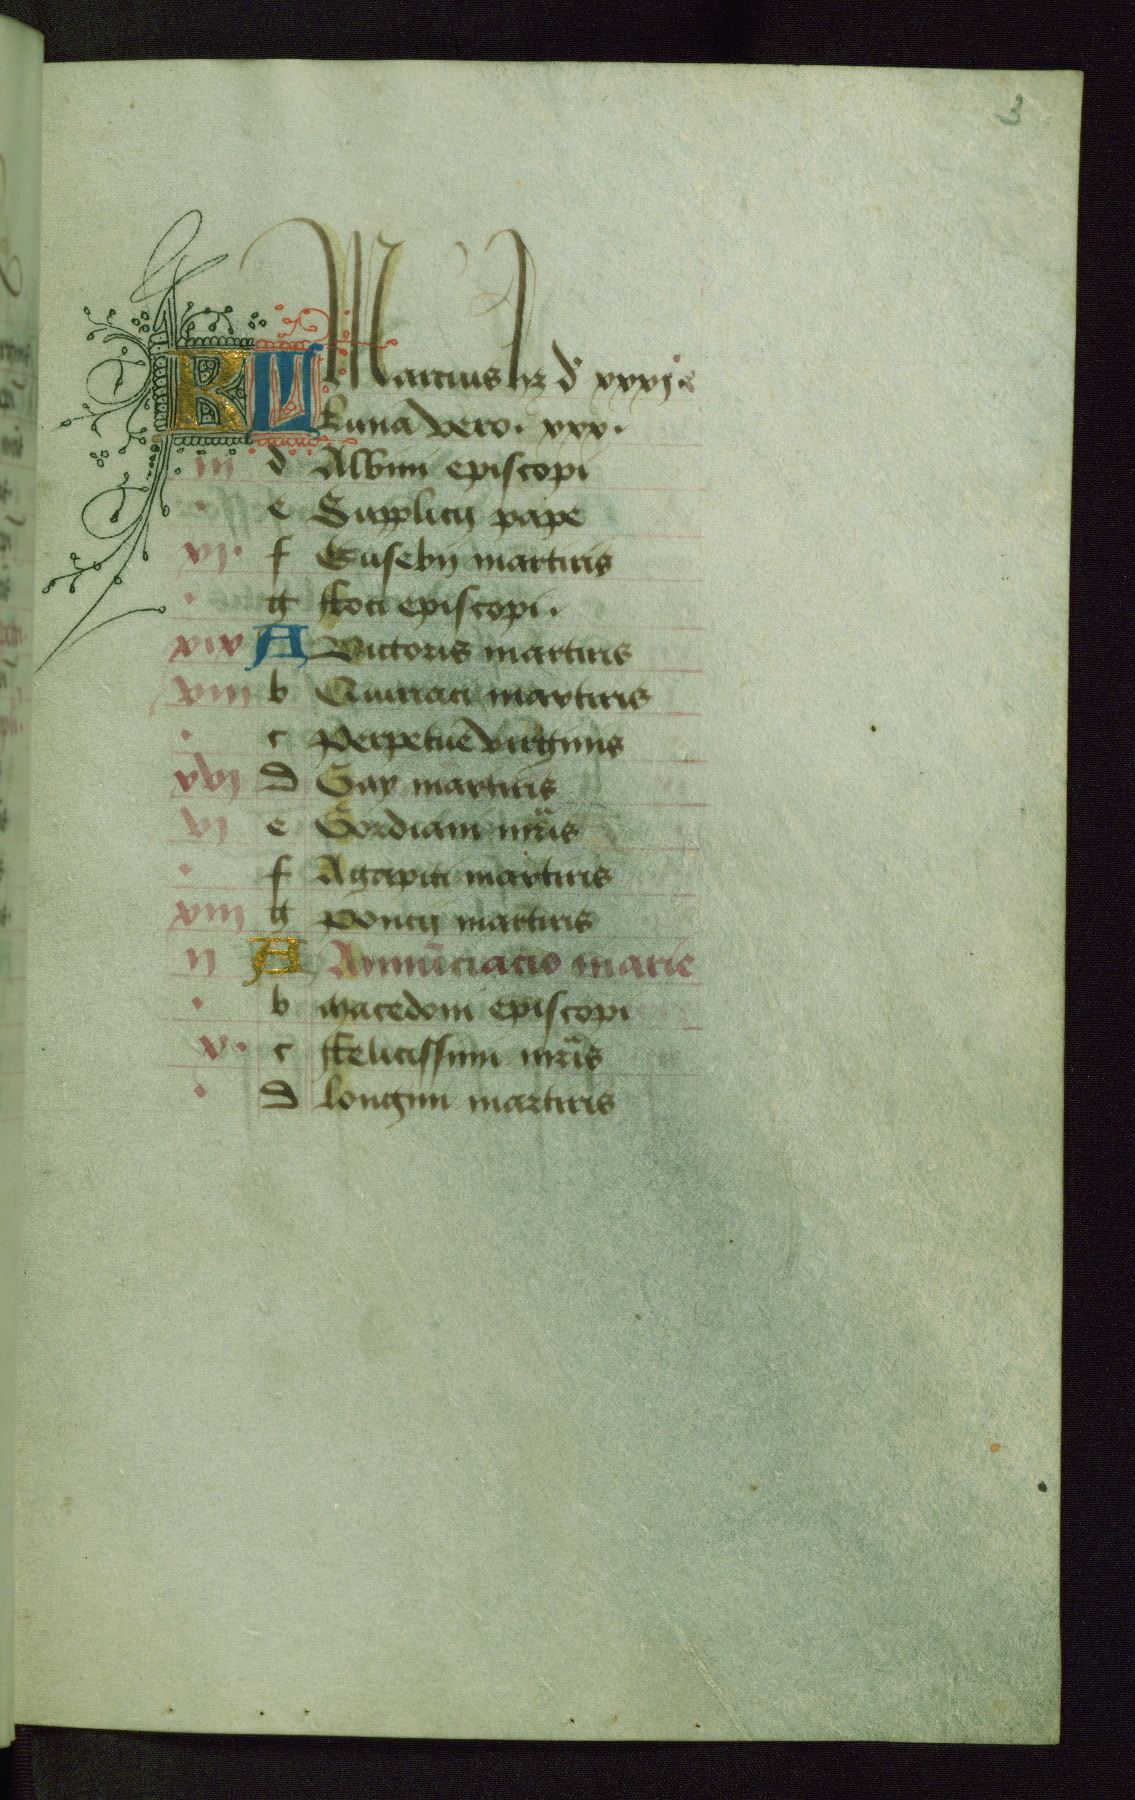 3
KL Marcius hz d' xxxj.
Luna vero. xxx.
iii d Albini episcopi
. e Supplicij pape
xi. f Eusebij martiris
. g ffoci episcopi.
xix A Victoris martiris
viii b Quiriaci martiris
. c Perpetue virginis
xvi d Gay martiris
v e Gordiani mr̄is
. f Agapiti martiris
xiii g Poncij martiris
ii A Annūciacio marie
. b Macedoni episcopi
x. c ffelicissimi mr̄is
. d Longini martiris